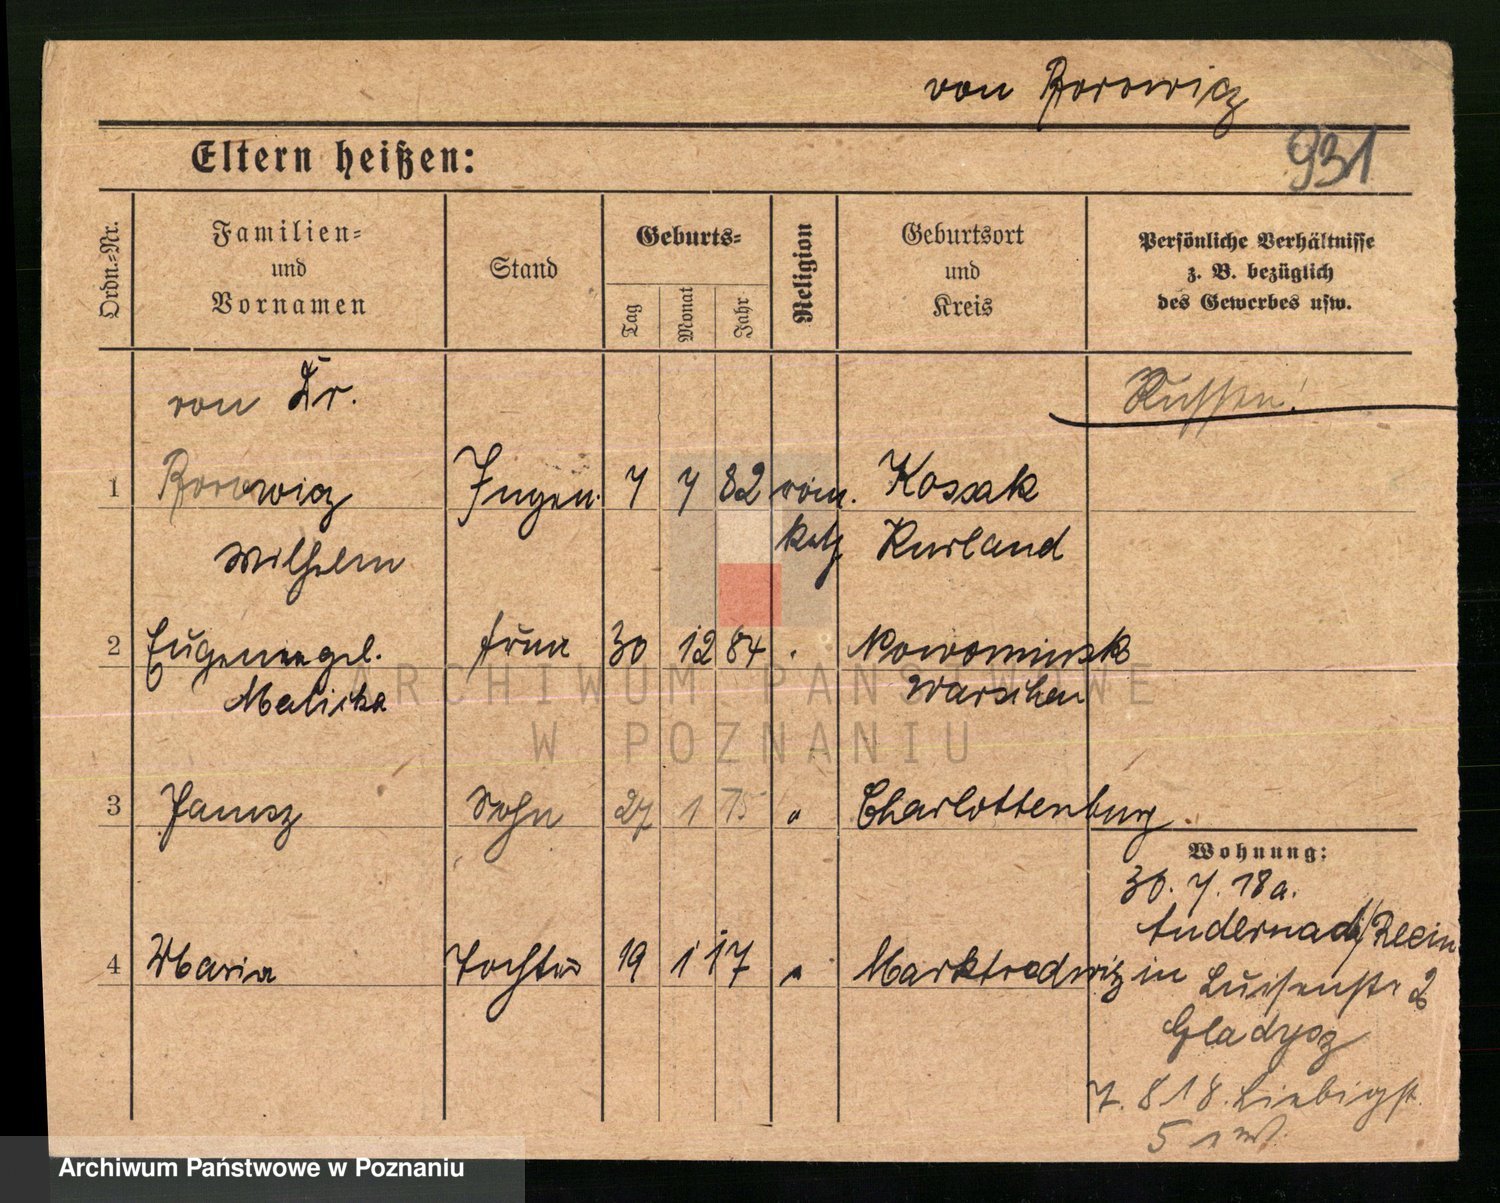 von Borowicz
931
Eltern heißen:
Ordn.-Nr.
Familien-
und
Vornamen
Stand
Geburts-
Tag
Monat
Jahr
Religion
Geburtsort
und
Kreis
Persönliche Verhältnisse
z. B. bezüglich
des Gewerbes usw.
von Dr.
Russen!
1 Borowicz Ingen. 7 7 82 röm. Kossak
Wilhelm kath Kurland
2 Eugenie gel. Frau 30 12 84 " Nowominsk
Malicka Warschau
3 Janusz Sohn 27 1 15 " Charlottenburg
Wohnung:
30. 7. 18 a.
Andernach/Rein
4 Maria Tochter 19 1 17 " Marktredwitz in Luisenstr 2
Gladysz
7. 8 18. Liebigst.
5
ARCHIWUM PAŃSTWOWE
W POZNANIU
Archiwum Państwowe w Poznaniu